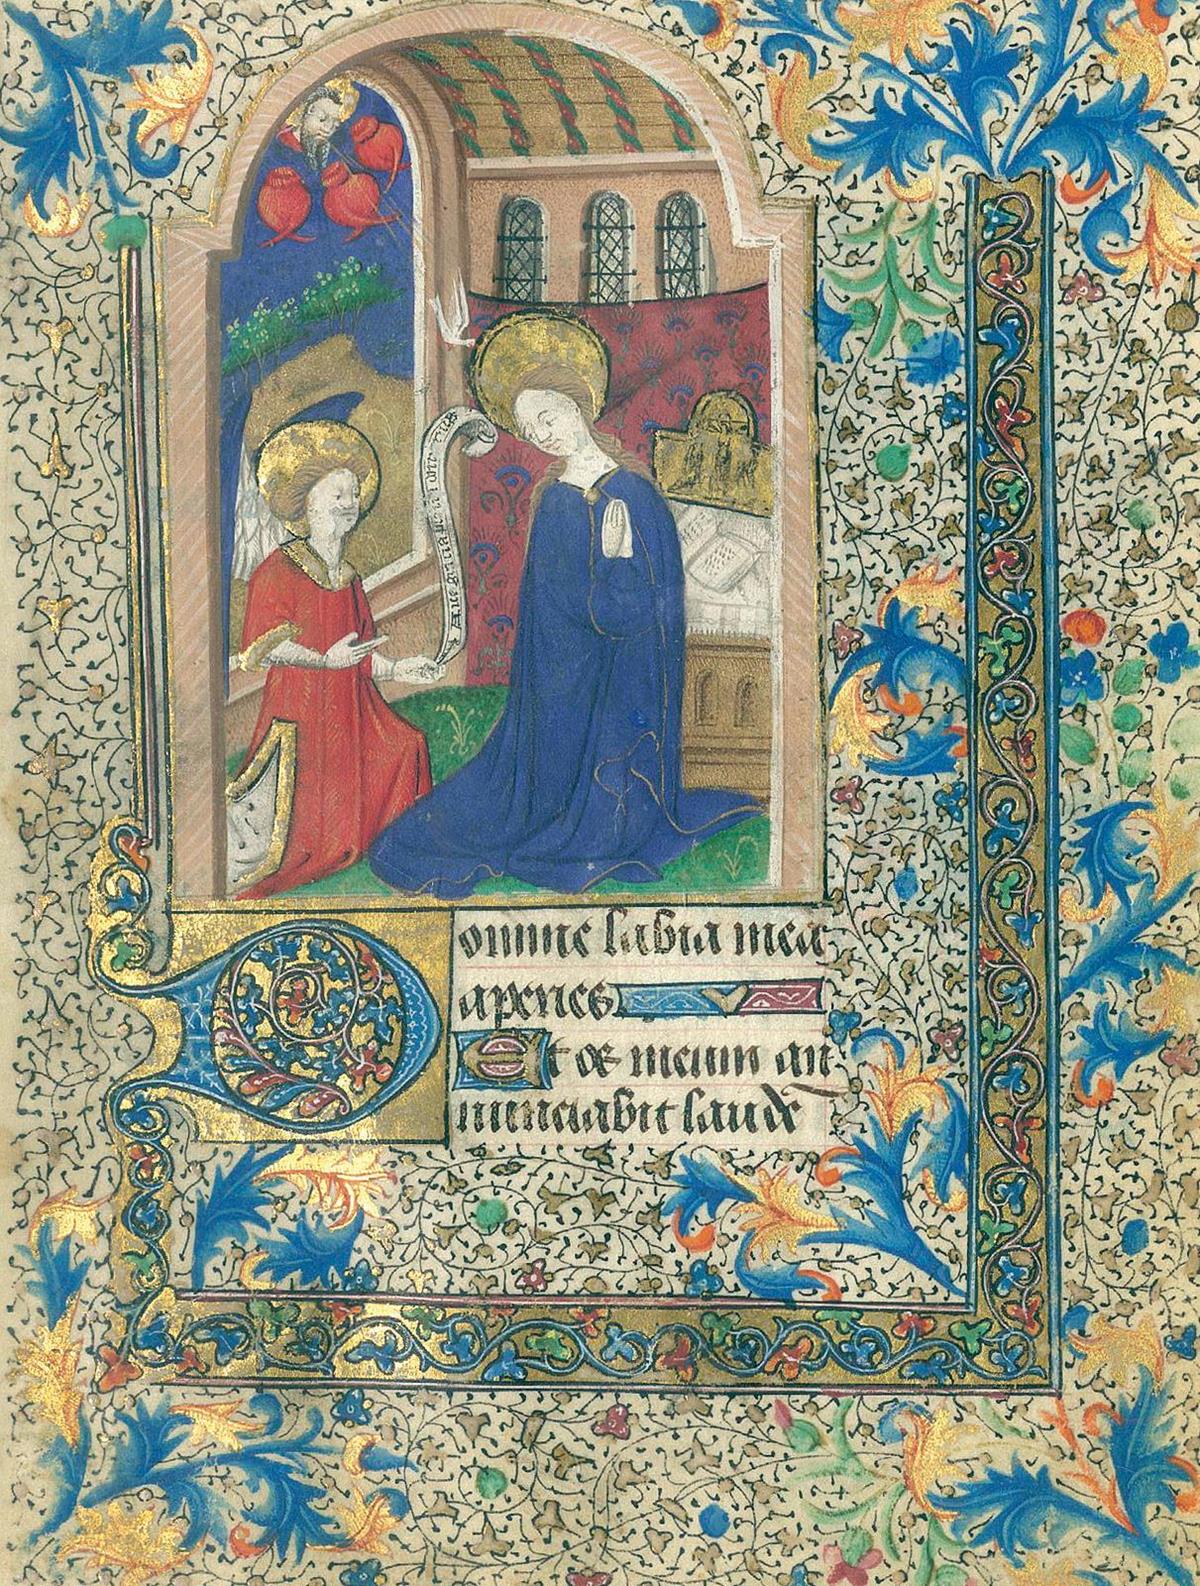 Ave gracia plena dominus
Domine labia mea
aperies
Et os meum an
nunciabit laudē